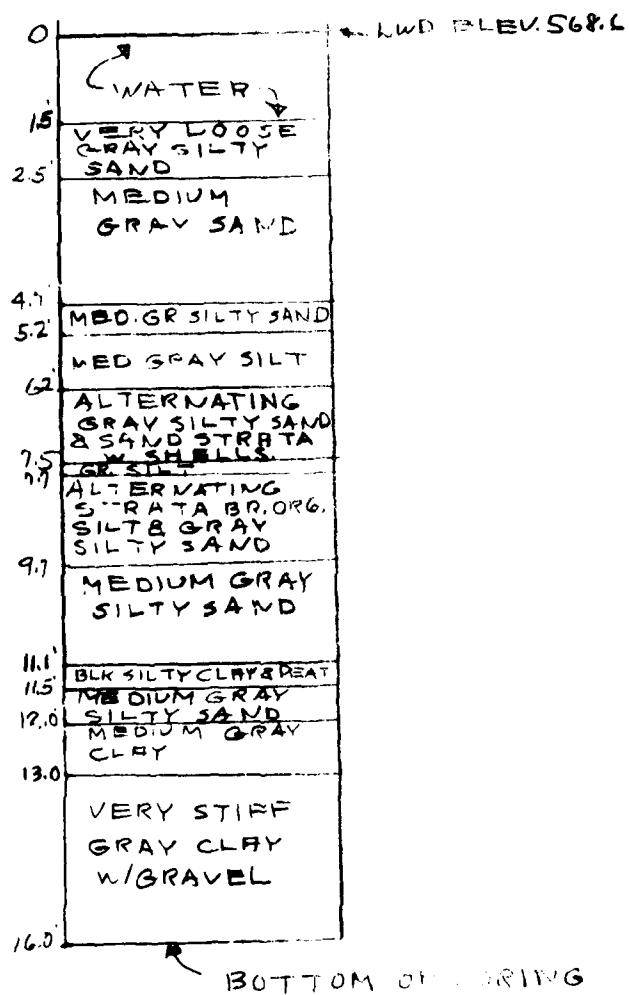 0 LWD ELEV. 568.6
WATER
1.5'
VERY LOOSE
GRAY SILTY
SAND
2.5'
MEDIUM
GRAY SAND
4.7'
MED. GR SILTY SAND
5.2'
MED GRAY SILT
6.2'
ALTERNATING
GRAY SILTY SAND
& SAND STRATA
W SHELLS
7.5'
GR. SILT
7.7'
ALTERNATING
STRATA BR. ORG.
SILT & GRAY
SILTY SAND
9.7'
MEDIUM GRAY
SILTY SAND
11.1'
BLK SILTY CLAY & PEAT
11.5'
MEDIUM GRAY
SILTY SAND
12.0'
MEDIUM GRAY
CLAY
13.0
VERY STIFF
GRAY CLAY
W/GRAVEL
16.0'
BOTTOM OF BORING